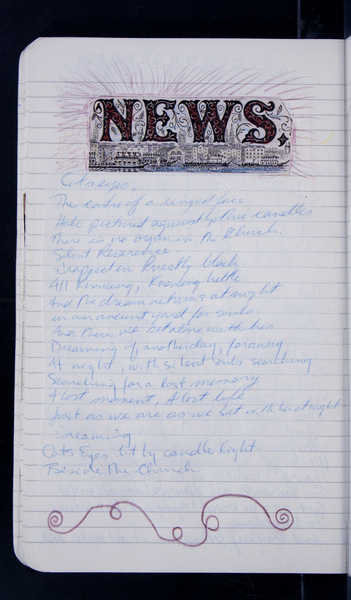 NEWS
Cats eyes.
The centre of a winged face
Held pictured against yellow candles
There is no organ in the Church.
Silent Reverence
Wrapped in Priestly black
All knowing, knowing little
And the dream returns at night
in an ancient yard for souls.
And then we sit alone with her
Dreaming of another day, faraway.
At night, with silent souls searching
Searching for a lost memory
A lost moment, A lost life
Just as we are as we sit with her at night -
dreaming
Cats Eyes lit by candle light
Beside the Church.